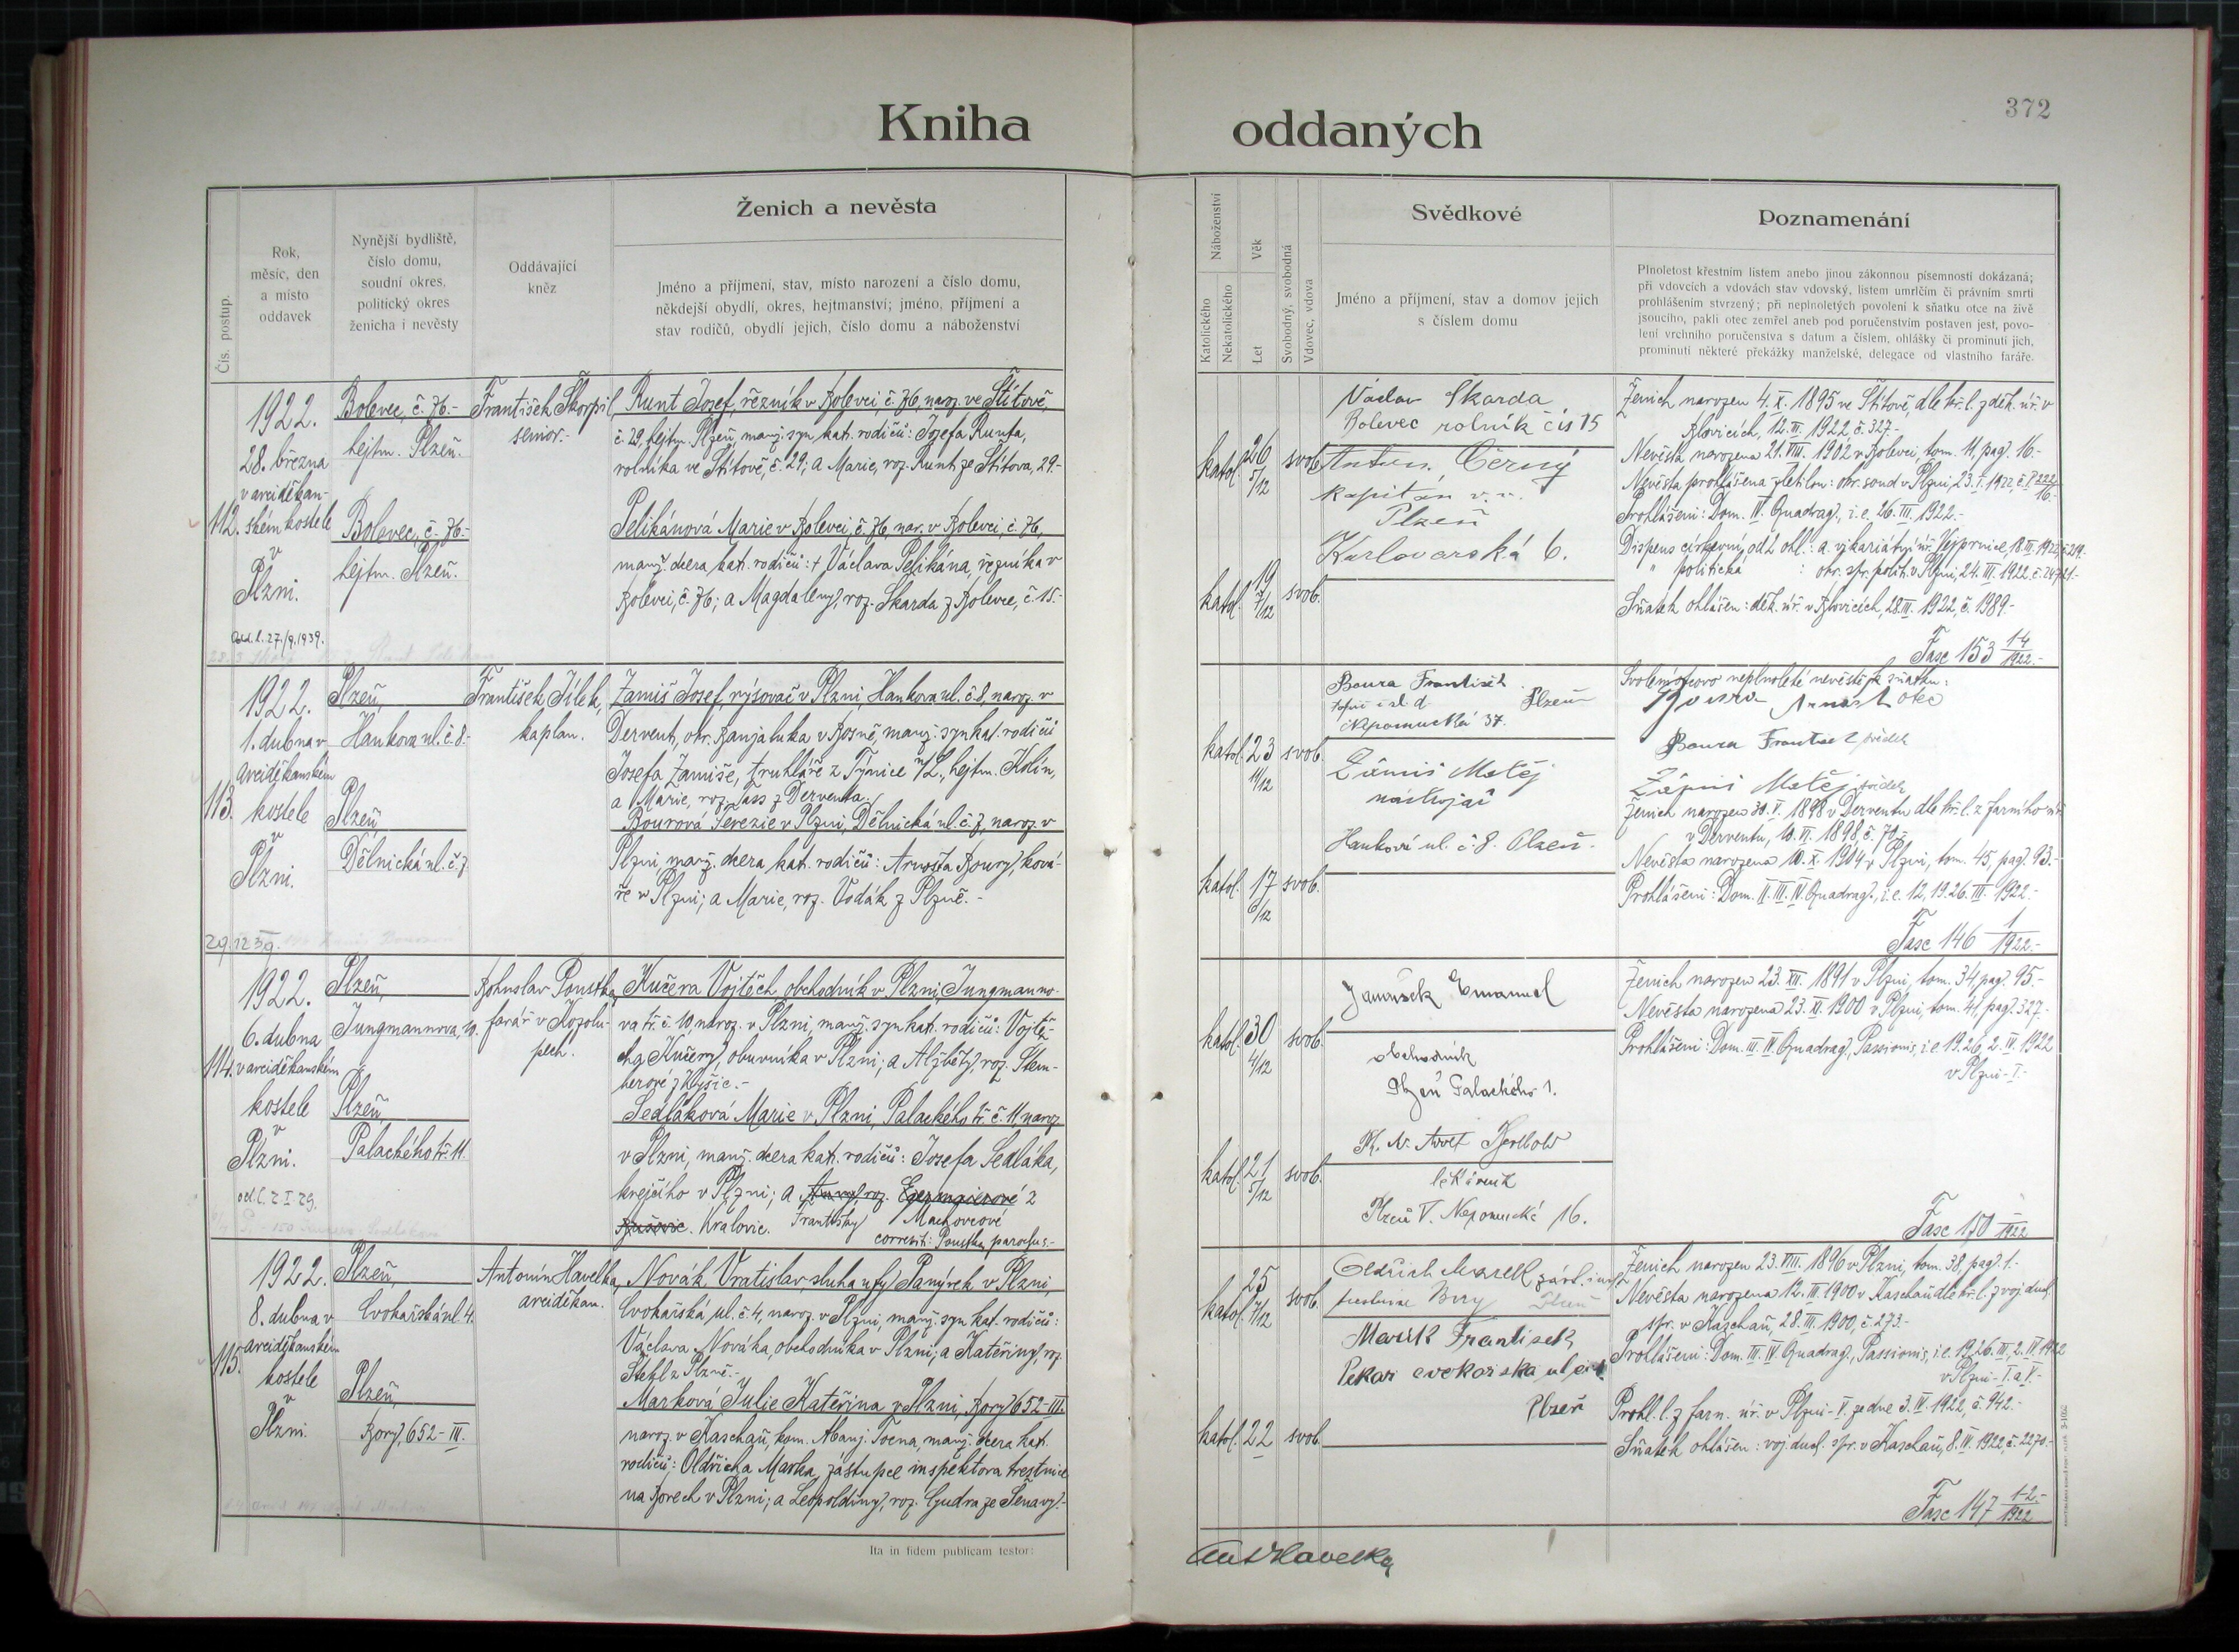 Kniha
oddaných
372
Čís. postup.
Rok,
měsíc, den
a místo
oddavek
Nynější bydliště,
číslo domu,
soudní okres,
politický okres
ženicha i nevěsty
Oddávající
kněz
Ženich a nevěsta
Jméno a příjmení, stav, místo narození a číslo domu,
někdejší obydlí, okres, hejtmanství; jméno, příjmení a
stav rodičů, obydlí jejich, číslo domu a náboženství
Náboženství
Katolického
Nekatolického
Věk
Let
Svobodný, svobodná
Vdovec, vdova
Svědkové
Jméno a příjmení, stav a domov jejich
s číslem domu
Poznamenání
Plnoletost křestním listem anebo jinou zákonnou písemností dokázaná;
při vdovcích a vdovách stav vdovský, listem umrlčím či právním smrti
prohlášením stvrzený; při neplnoletých povolení k sňatku otce na živě
jsoucího, pakli otec zemřel aneb pod poručenstvím postaven jest, povo-
lení vrchního poručenstva s datum a číslem, ohlášky či prominutí jich,
prominutí některé překážky manželské, delegace od vlastního faráře.
112.
1922.
28. března
v arciděkan-
ském kostele
v
Plzni.
27./9.1939.
Bolevec, č. 76.-
hejtm. Plzeň.
Bolevec, č. 76.-
hejtm. Plzeň.
František Škorpil,
senior.-
Runt Josef, řezník v Bolevci, č. 76, naroz. ve Štítově,
č. 29, hejtm. Plzeň, manž. syn kat. rodičů: Josefa Runta,
rolníka ve Štítově, č. 29; a Marie, roz. Runt ze Štítova, 29.-
Pelikánová Marie v Bolevci, č. 76, nar. v Bolevci, č. 76,
manž. dcera kat. rodičů: + Václava Pelikána, řezníka v
Bolevci, č. 76; a Magdaleny, roz. Škarda z Bolevce, č. 15.-
katol. 26 5/12 svob.
katol. 19 7/12 svob.
Václav Škarda
Bolevec rolník čís 15
Anton. Černý
kapitán v. v.
Plzeň
Karlovarská 6.
Ženich narozen 4. X. 1895 ve Štítově, dle kř. l. z děk. úř. v
Blovicích, 12. III. 1922, č. 327.-
Nevěsta narozena 21. VIII. 1902 v Bolevci, tom. 11, pag. 16.-
Nevěsta prohlášena zletilou: okr. soud v Plzni, 23. I. 1922, č. P 222/16.-
Prohlášeni: Dom. IV. Quadrag., i. e. 26. III. 1922.-
Dispens církevní od 2 ohl.: a. vikariátní úř. Vejprnice, 18. III. 1922, č. 219.-
" politická : okr. spr. polit. v Plzni, 24. III. 1922, č. 24721.-
Sňatek ohlášen: děk. úř. v Blovicích, 28. III. 1922, č. 1989.-
Fasc 153 1-4/1922.-
113.
1922.
1. dubna v
arciděkanském
kostele
v
Plzni.
29. 12 39.
Plzeň,
Hankova ul. č. 8.-
Plzeň
Dělnická ul. č. 7
František Jílek,
kaplan.
Zamiš Josef, rýsovač v Plzni, Hankova ul. č. 8, naroz. v
Dervent, okr. Banjaluka v Bosně, manž. syn kat. rodičů
Josefa Zamiše, truhláře z Týnice n/L., hejtm. Kolín,
a Marie, roz. Tass z Derventa.
Bourová Terezie v Plzni, Dělnická ul. č. 7, naroz. v
Plzni, manž. dcera kat. rodičů: Arnošta Boury, ková-
ře v Plzni; a Marie, roz. Vodák z Plzně.-
katol. 23 11/12 svob.
katol. 17 6/12 svob.
Boura František
Plzeň
Nepomucká 37.
Zámiš Matěj
nástrojař
Hankova ul. č. 8. Plzeň.
Svolení otcovo neplnoleté nevěstě k sňatku:
Boura Arnošt otec
Boura František svědek
Zámiš Matěj svědek
Ženich narozen 30. V. 1898 v Derventu dle kř. l. z farního úř.
v Derventu, 10. VI. 1898, č. 70.-
Nevěsta narozena 10. X. 1904 v Plzni, tom. 45, pag. 93.-
Prohlášeni: Dom. II. III. IV. Quadrag., i. e. 12, 19. 26. III. 1922.-
Fasc 146 1/1922.-
114.
1922.
6. dubna
v arciděkanském
kostele
v
Plzni.
od. l. 2 I 29.
Plzeň,
Jungmannova, 10.
Plzeň
Palackého tř. 11.
Bohuslav Poustka,
farář v Kozolu-
pech.
Kučera Vojtěch, obchodník v Plzni, Jungmanno-
va tř. č. 10, naroz. v Plzni, manž. syn kat. rodičů: Vojtě-
cha Kučery, obuvníka v Plzni; a Alžběty, roz. Štem-
berové z Kyšic.-
Sedláková Marie v Plzni, Palackého tř. č. 11, naroz.
v Plzni, manž. dcera kat. rodičů: Josefa Sedláka,
krejčího v Plzni; a Anny, roz. z
Kralovic. Františky Machovcové
correxit: Poustka, parochus.-
katol. 30 4/12 svob.
katol. 21 5/12 svob.
Janoušek Emanuel
obchodník
Plzeň Palackého 1.
lékárník
Plzeň V. Nepomucká 16.
Ženich narozen 23. XII. 1891 v Plzni, tom. 34, pag. 95.-
Nevěsta narozena 23. XI. 1900 v Plzni, tom. 41, pag. 327.-
Prohlášeni: Dom. III. IV. Quadrag., Passionis, i. e. 19. 26. 2. IV. 1922
v Plzni - I.-
Fasc 150 1/1922
115.
1922.
8. dubna v
arciděkanském
kostele
v
Plzni.
Plzeň,
Cvokařská ul. 4.
Plzeň,
Bory, 652-III.
Antonín Havelka,
arciděkan.
Novák Vratislav, sluha u fy Panýrek v Plzni,
Cvokařská ul. č. 4, naroz. v Plzni, manž. syn kat. rodičů:
Václava Nováka, obchodníka v Plzni; a Kateřiny, roz.
Stehl z Plzně.-
Marková Julie Kateřina v Plzni, Bory 652-III.
naroz. v Kaschau, kom. Abauj. Torna, manž. dcera kat.
rodičů: Oldřicha Marka, zástupce inspektora trestnice
na Borech v Plzni; a Leopoldiny, roz. Gudra ze Senavy.-
katol. 25 7/12 svob.
katol. 22 svob.
Oldřich Marek zást. insp.
trestnice Bory Plzeň
Marek František
Pekař cvokařska ul
Plzeň
Ženich narozen 23. VIII. 1896 v Plzni, tom. 38, pag. 1.-
Nevěsta narozena 12. III. 1900 v Kaschau dle kř. l. z voj. duch.
spr. v Kaschau, 28. III. 1900, č. 273.-
Prohlášeni: Dom. III. IV Quadrag., Passionis, i. e. 19. 26. III., 2. IV. 1922
v Plzni - I. a V.-
Prohl. l. z farn. úř. v Plzni-V. ze dne 3. IV. 1922, č. 942.-
Sňatek ohlášen: voj. duch. spr. v Kaschau, 8. IV. 1922, č. 2270.-
Fasc 147 1-2.-/1922
Ita in fidem publicam testor:
Ant Havelka